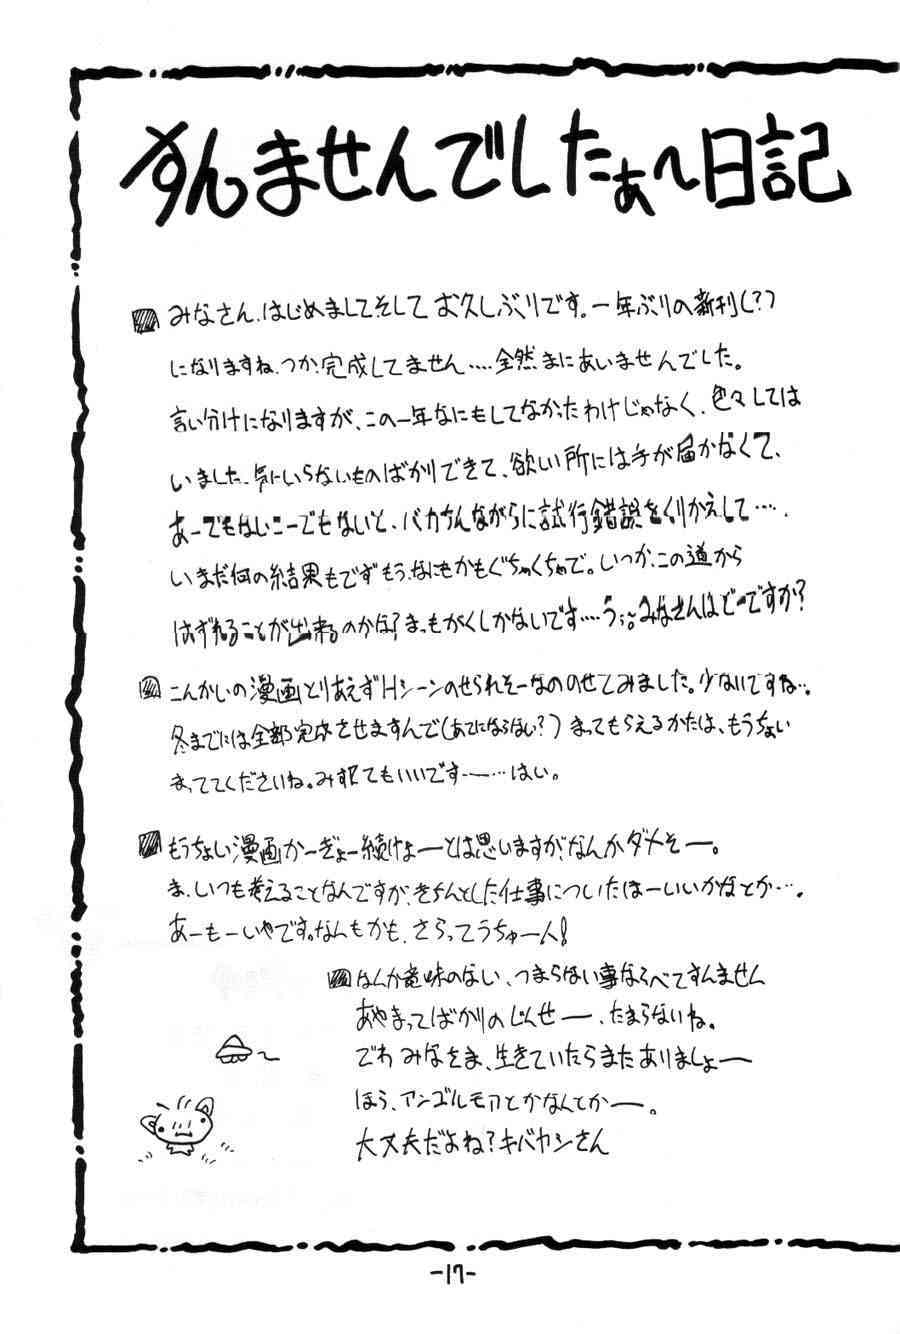 すんませんでしたぁ〜日記
みなさん、はじめまして、そして お久しぶりです。一年ぶりの新刊(?)
になりますね、つか、完成してません‥‥全然まにあいませんでした。
言い分けになりますが、この一年なにもしてなかったわけじゃなく、色々しては
いました、気にいらないものばかりできて、欲しい所には手が届かなくて、
あーでもないこーでもないと、バカさんながらに試行錯誤をくりかえして‥‥、
いまだ何の結果もでず もう、なにもかもぐちゃくちゃで。いつか、この道から
はずれることが出来るのかな?まっもがくしかないです‥‥う;。みなさんはどーですか?
こんかいの漫画とりあえずHシーンのせられそーなののせてみました。少ないですね‥。
冬までには全部完成させますんで(あてにならない?) まってもらえるかたは、もうちょい
まっててくださいね。み捨てもいいです――‥‥はい。
もうちょい漫画かーぎょー続けょーとは思いますが、なんかダメそー。
ま、いつも考えることなんですが、きちんとした仕事についたほーいいかなとか‥‥。
あーもーいやです。なんもかも、さらってうちゅー人!
なんか意味のない、つまらない事ならべてすんません
あやまってばかりのじんせー、たまらないね。
でわ みなさま、生きていたらまたありましょー
ほら、アンゴルモアとかなんとかー。
大丈夫だよね?キバヤシさん
-17-